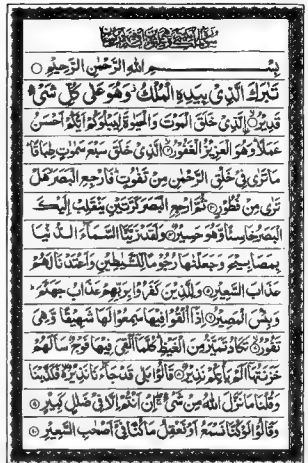 بِسْمِ اللهِ الرَّحْمٰنِ الرَّحِيْمِ
تَبٰرَكَ الَّذِىْ بِيَدِهِ الْمُلْكُ وَهُوَ عَلٰى كُلِّ شَىْءٍ
قَدِيْرُ ۙ الَّذِىْ خَلَقَ الْمَوْتَ وَالْحَيٰوةَ لِيَبْلُوَكُمْ اَيُّكُمْ اَحْسَنُ
عَمَلًا وَهُوَ الْعَزِيْزُ الْغَفُوْرُ ۙ الَّذِىْ خَلَقَ سَبْعَ سَمٰوٰتٍ طِبَاقًا
مَا تَرٰى فِىْ خَلْقِ الرَّحْمٰنِ مِنْ تَفٰوُتٍ فَارْجِعِ الْبَصَرَ هَلْ
تَرٰى مِنْ فُطُوْرٍ ثُمَّ ارْجِعِ الْبَصَرَ كَرَّتَيْنِ يَنْقَلِبْ اِلَيْكَ
الْبَصَرُ خَاسِئًا وَهُوَ حَسِيْرٌ وَلَقَدْ زَيَّنَّا السَّمَآءَ الدُّنْيَا
بِمَصَابِيْحَ وَجَعَلْنٰهَا رُجُوْمًا لِّلشَّيٰطِيْنِ وَاَعْتَدْنَا لَهُمْ
عَذَابَ السَّعِيْرِ وَلِلَّذِيْنَ كَفَرُوْا بِرَبِّهِمْ عَذَابُ جَهَنَّمَ
وَبِئْسَ الْمَصِيْرُ اِذَآ اُلْقُوْا فِيْهَا سَمِعُوْا لَهَا شَهِيْقًا وَّهِىَ
تَفُوْرُ تَكَادُ تَمَيَّزُ مِنَ الْغَيْظِ كُلَّمَآ اُلْقِىَ فِيْهَا فَوْجٌ سَاَلَهُمْ
خَزَنَتُهَآ اَلَمْ يَاْتِكُمْ نَذِيْرٌ قَالُوْا بَلٰى قَدْ جَآءَنَا نَذِيْرٌ فَكَذَّبْنَا
وَقُلْنَا مَا نَزَّلَ اللهُ مِنْ شَىْءٍ اِنْ اَنْتُمْ اِلَّا فِىْ ضَلٰلٍ كَبِيْرٍ
وَقَالُوْا لَوْ كُنَّا نَسْمَعُ اَوْ نَعْقِلُ مَا كُنَّا فِىْٓ اَصْحٰبِ السَّعِيْرِ